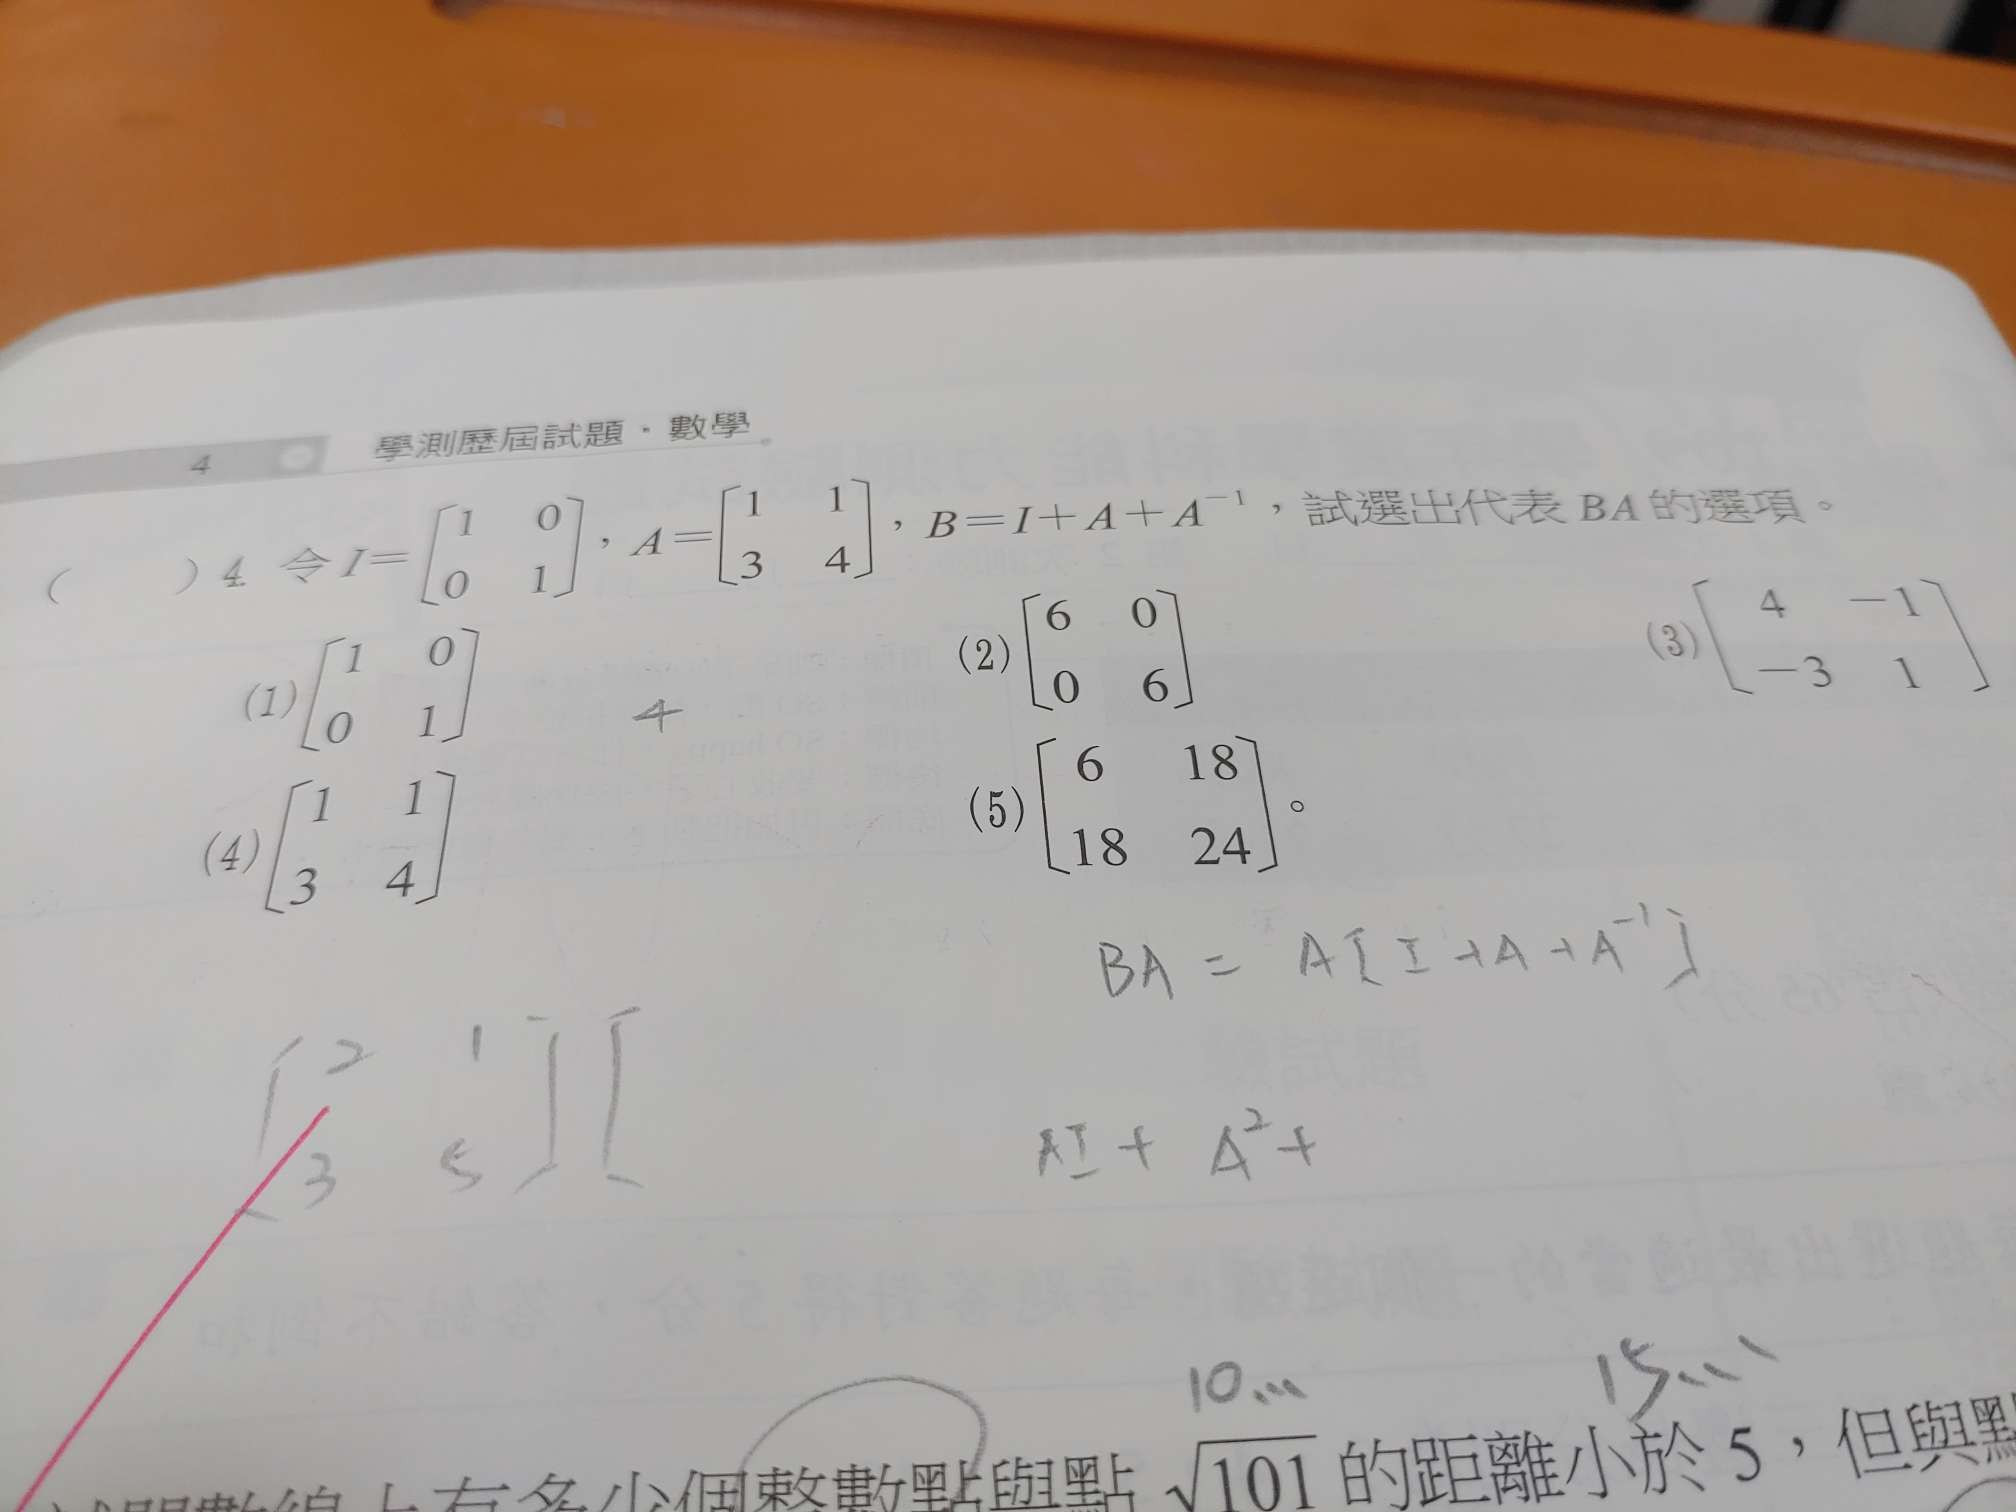 4 學測歷屆試題・數學
( ) 4. 令 I = [1 0; 0 1], A = [1 1; 3 4], B = I + A + A⁻¹,試選出代表 BA 的選項。
(1) [1 0; 0 1] (2) [6 0; 0 6] (3) [4 −1; −3 1]
4
(4) [1 1; 3 4] (5) [6 18; 18 24]。
BA = A[I + A + A⁻¹]
[2 1; 3 5][
AI + A² +
10... 15...
數線上有多少個整數點與點 √101 的距離小於 5,但與點